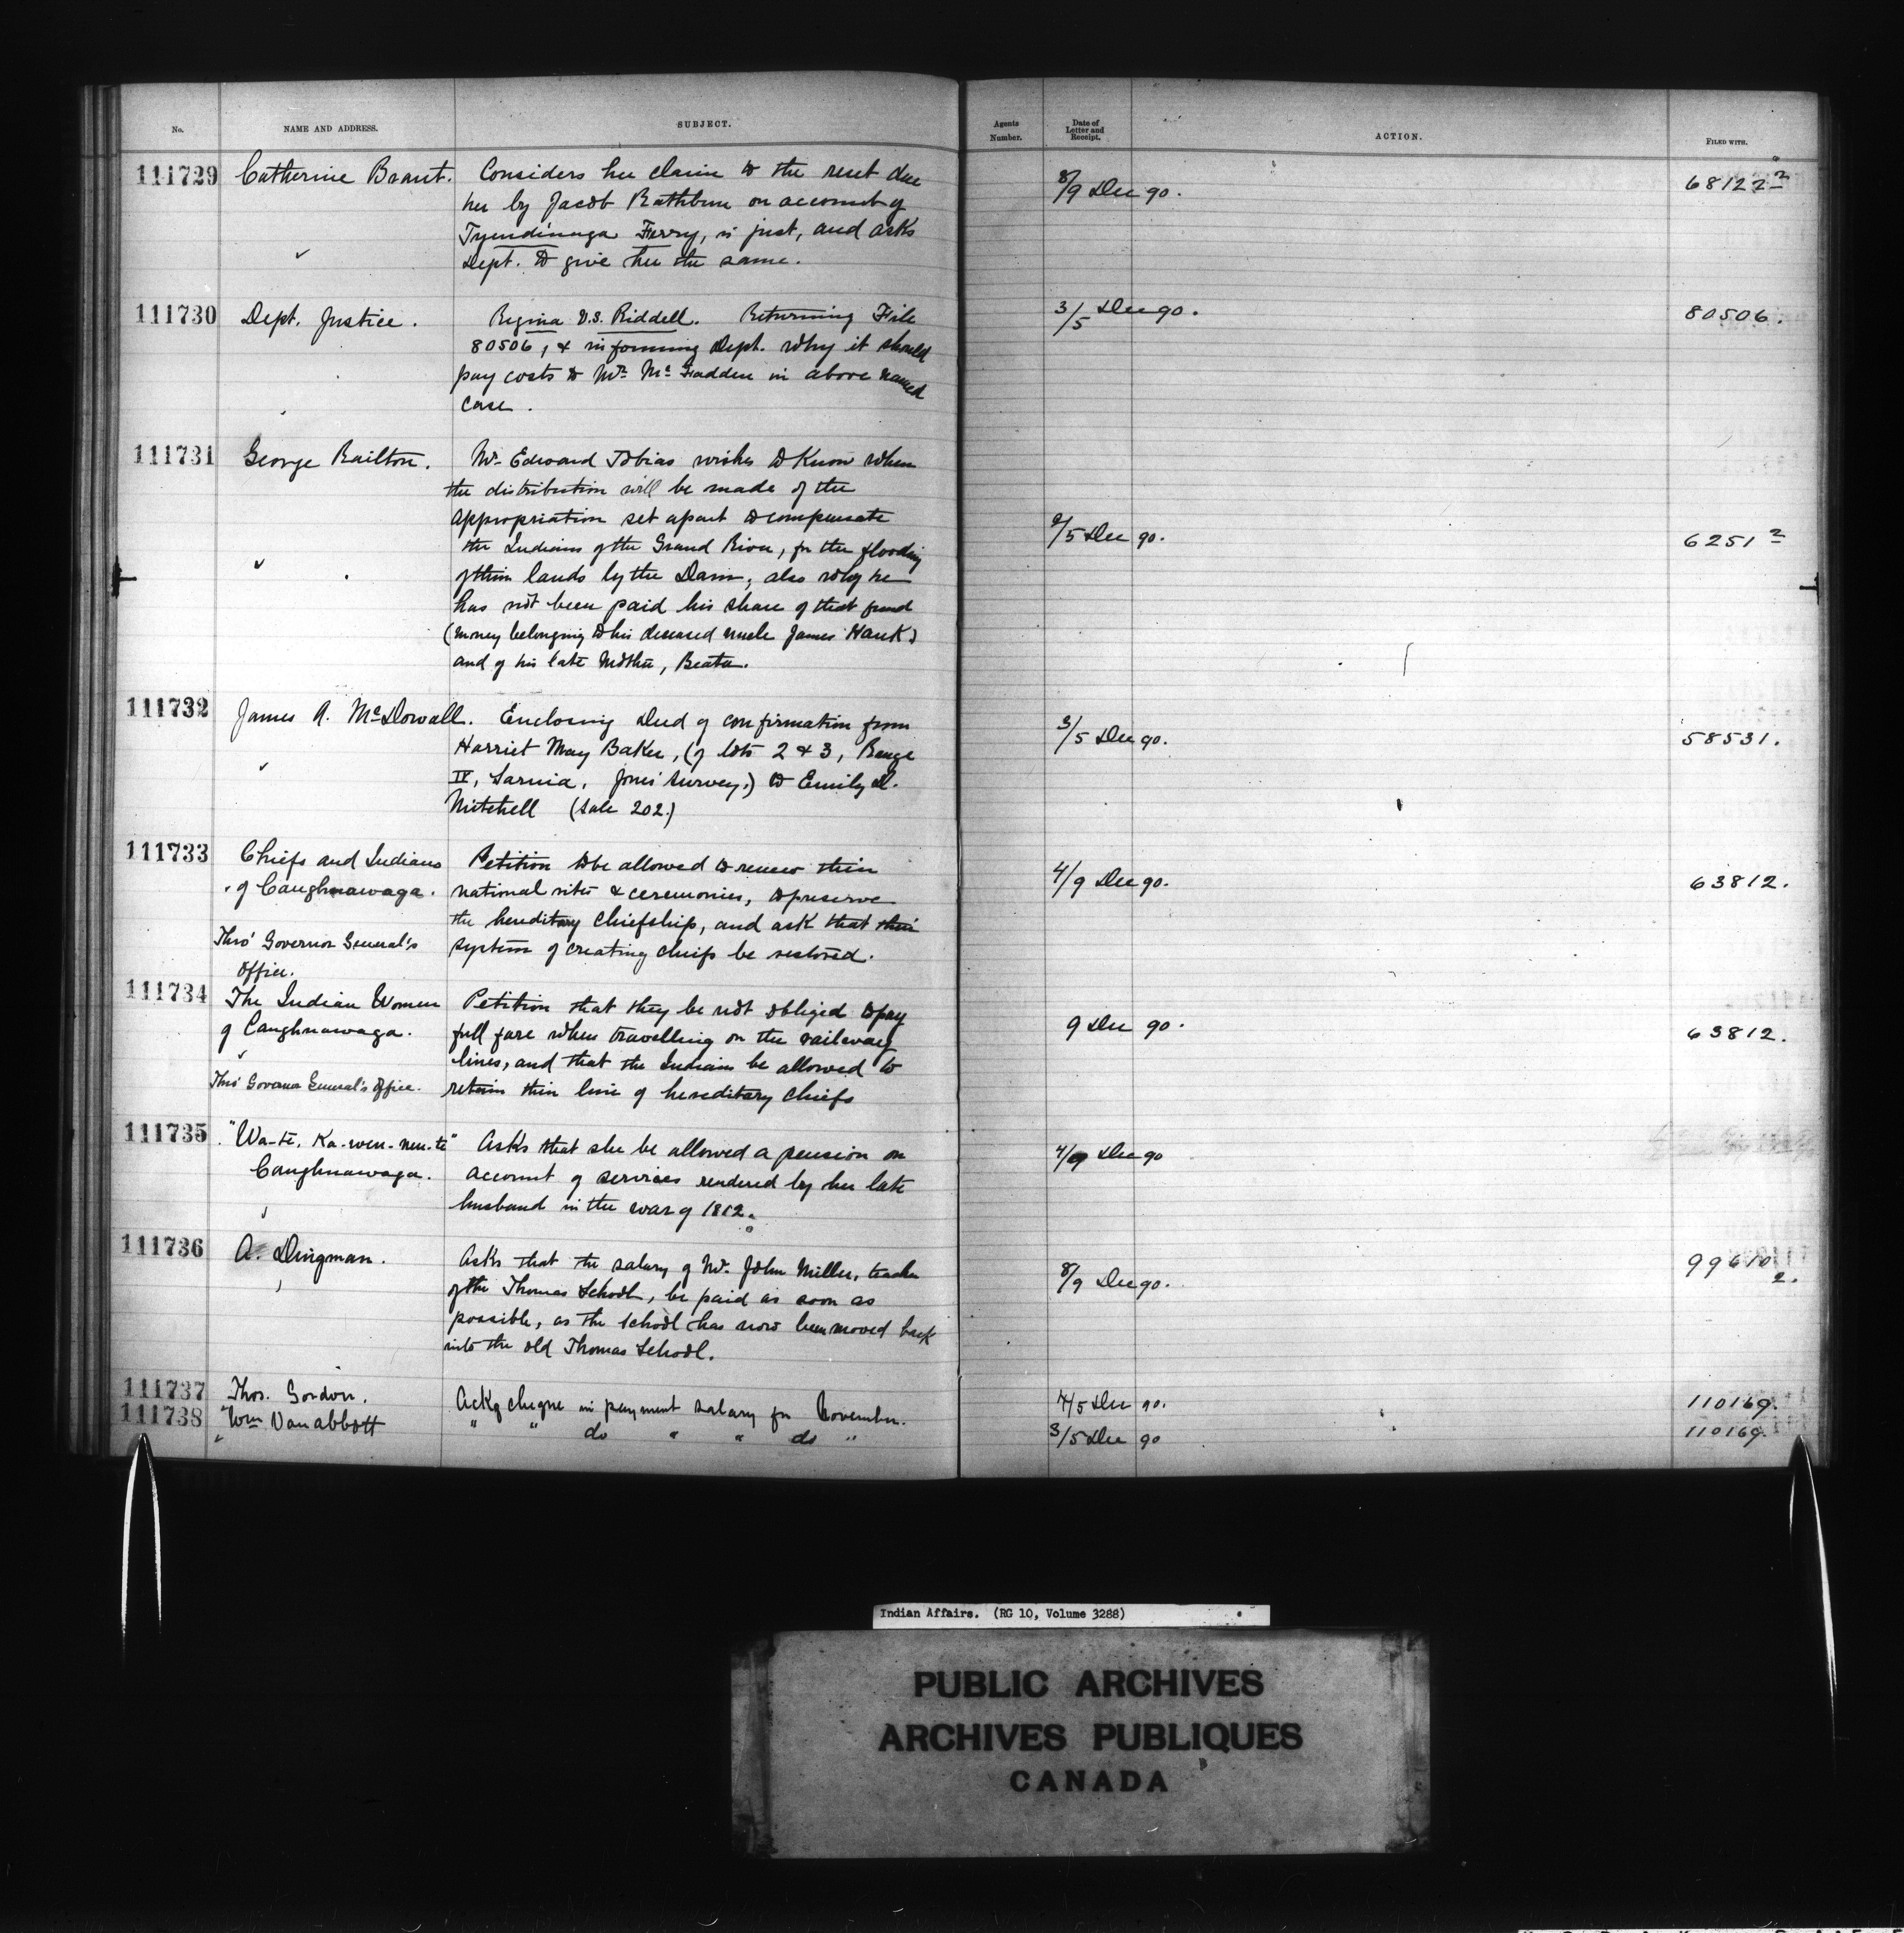 No. NAME AND ADDRESS. SUBJECT. Agents Number. Date of Letter and Receipt. ACTION. FILED WITH.
111729 Catherine Brant. Considers her claim to the rent due 8/9 Dec 90. 68122 2
her by Jacob Rathbun on account of
Tyendinaga Ferry, is just, and asks
Dept. to give her the same.
111730 Dept. Justice. Regina v.s. Riddell. Returning File 3/5 Dec 90. 80506.
80506, & informing Dept. why it should
pay costs to Mr. McFadden in above named
case.
111731 George Railton. Mr. Edward Tobias wishes to know when
the distribution will be made of the
appropriation set apart to compensate
the Indians of the Grand River, for the flooding 2/5 Dec 90. 6251 2
of their lands by the Dam, also why he
has not been paid his share of that fund
(money belonging to his deceased uncle James Hank)
and of his late Mother, Beata.
111732 James A. McDowall. Enclosing Deed of confirmation from 3/5 Dec 90. 58531.
Harriet May Baker, (of lots 2 & 3, Range
IV, Sarnia, Jones' Survey.) to Emily D.
Mitchell (Sale 202.)
111733 Chiefs and Indians Petition to be allowed to renew their 4/9 Dec 90. 63812.
of Caughnawaga. national rites & ceremonies, to preserve
the hereditary chiefship, and ask that their
Thro' Governor General's system of creating chiefs be restored.
Office.
111734 The Indian Women Petition that they be not obliged to pay
of Caughnawaga. full fare when travelling on the railway 9 Dec 90. 63812.
lines, and that the Indians be allowed to
Thro' Governor General's Office. retain their line of hereditary chiefs
111735 "Wa-te. Ka-wen-nen-te" Asks that she be allowed a pension on 4/9 Dec 90
Caughnawaga. account of services rendered by her late
husband in the war of 1812.
111736 A. Dingman. Asks that the salary of Mr. John Miller, teacher 8/9 Dec 90. 99610 2.
of the Thomas School, be paid as soon as
possible, as the school has now been moved back
into the old Thomas School.
111737 Thos. Gordon. Ackg cheque in payment salary for November. 4/5 Dec 90. 110169.
111738 Wm Vanabbott " " do " " do " 3/5 Dec 90 110169.
Indian Affairs. (RG 10, Volume 3288)
PUBLIC ARCHIVES
ARCHIVES PUBLIQUES
CANADA